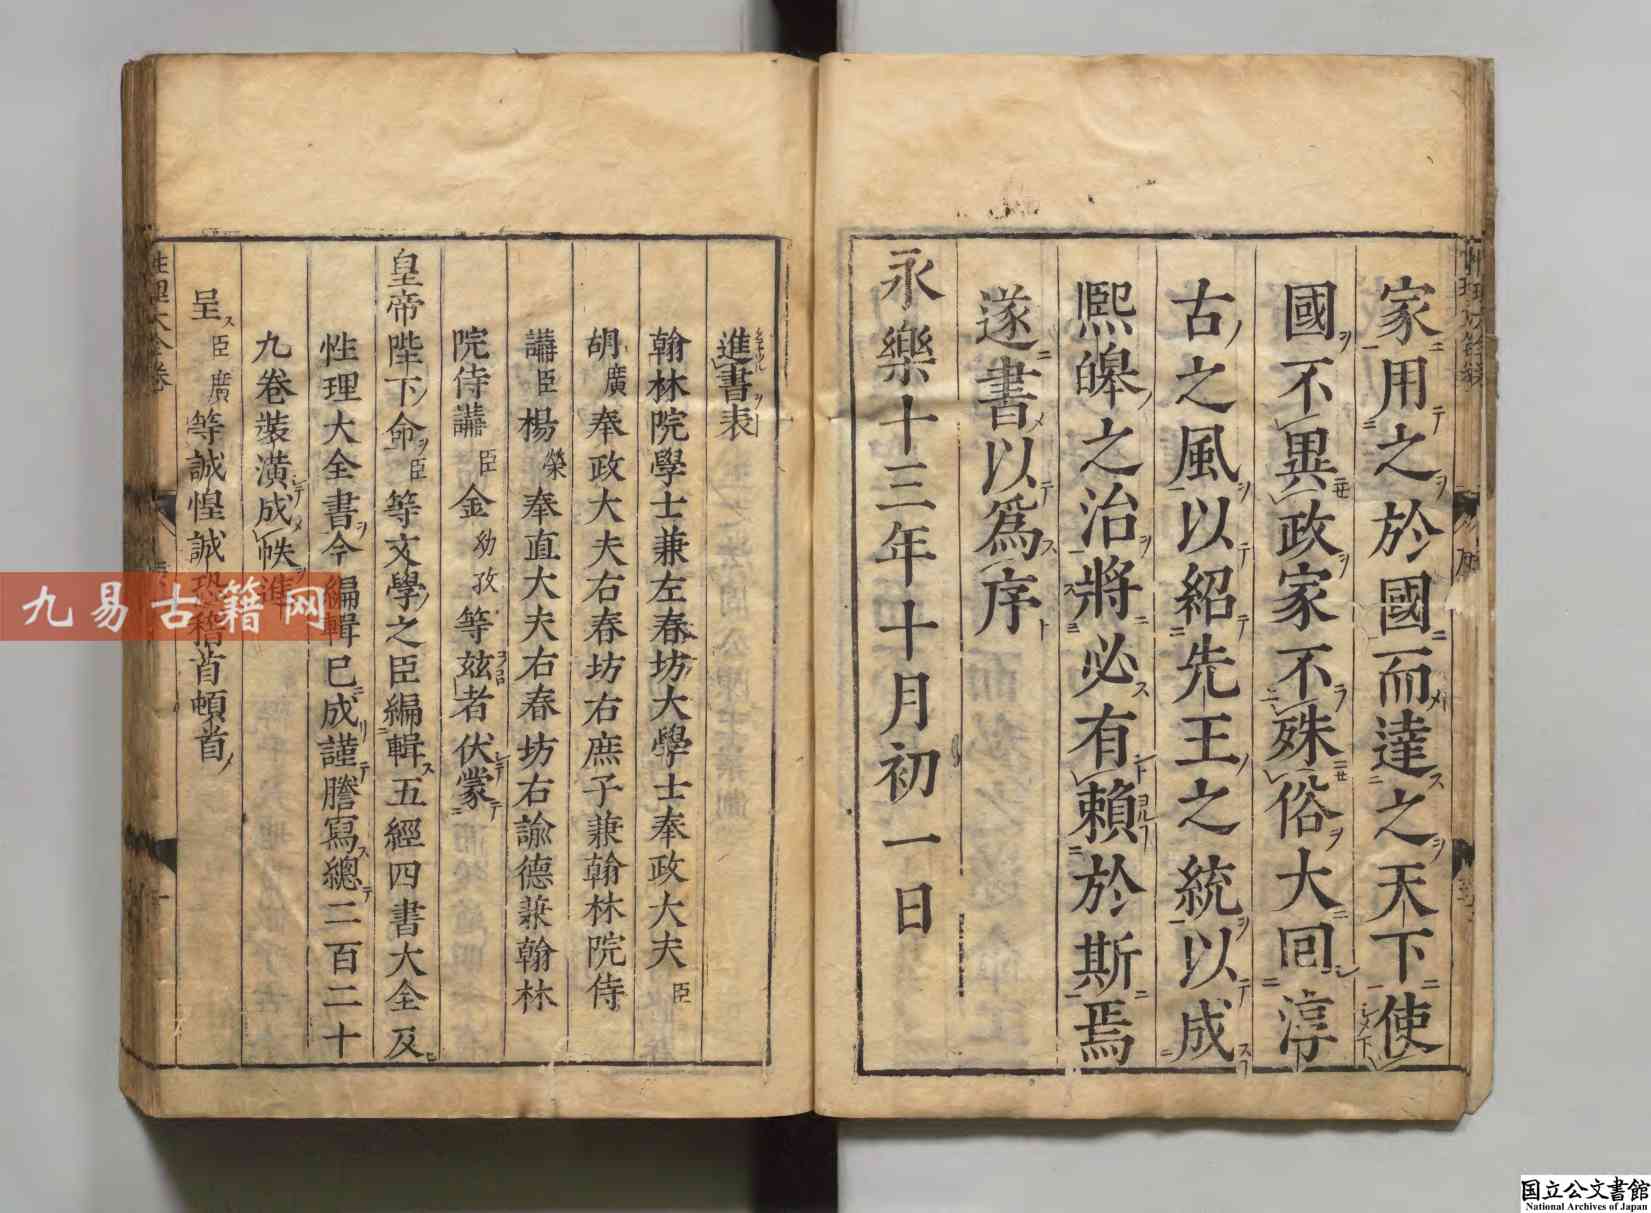 家用之於國而達之天下使
國不異政家不殊俗大回淳
古之風以紹先王之統以成
熈皥之治將必有賴於斯焉
遂書以爲序
永樂十三年十月初一日
進書表
翰林院學士兼左春坊大學士奉政大夫臣
胡廣奉政大夫右春坊右庶子兼翰林院侍
講臣楊榮奉直大夫右春坊右諭德兼翰林
院侍講臣金幼孜等兹者伏蒙
皇帝陛下命臣等文學之臣編輯五經四書大全及
性理大全書今編輯已成謹謄寫總二百二十
九卷裝潢成帙進
呈臣廣等誠惶誠恐稽首頓首
性理大全卷
九易古籍网
国立公文書館
National Archives of Japan